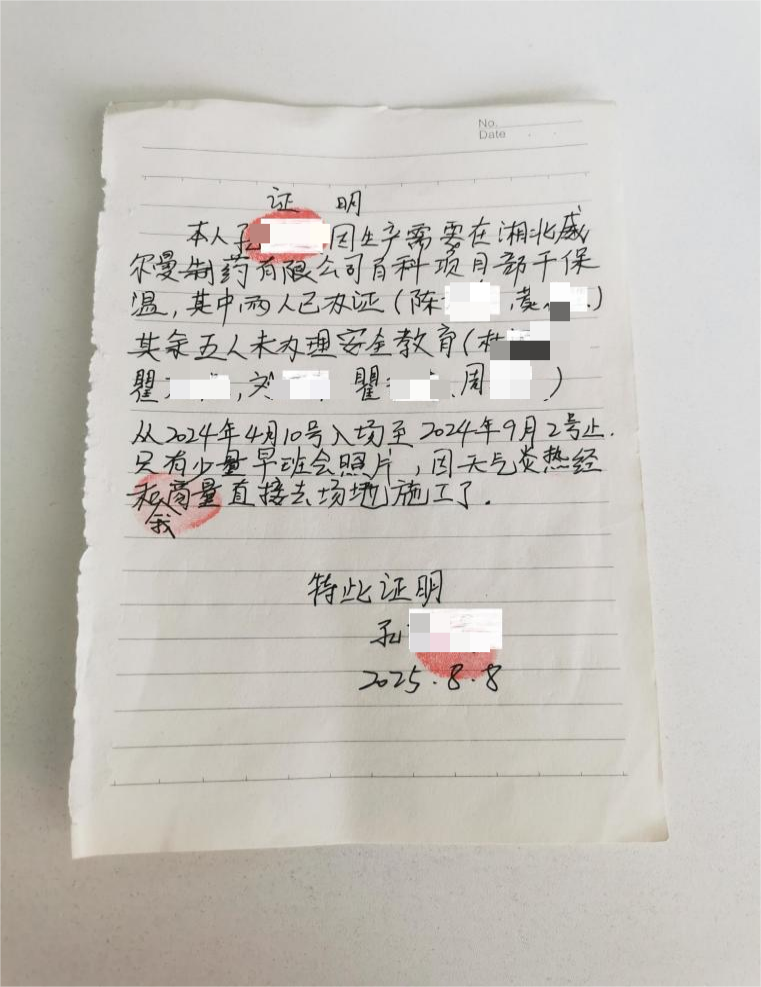 No.
Date
证 明
本人孔 因生产需要在湘北威
尔曼制药有限公司百科项目部干保
温,其中两人已办证(陈 ,黄 )
其余五人未办理安全教育(杜
瞿 ,文 瞿 、周 )
从2024年4月10号入场至2024年9月2号止.
只有少量早班会照片,因天气炎热经
和商量直接去场地施工了.
我
特此证明
孔
2025.8.8